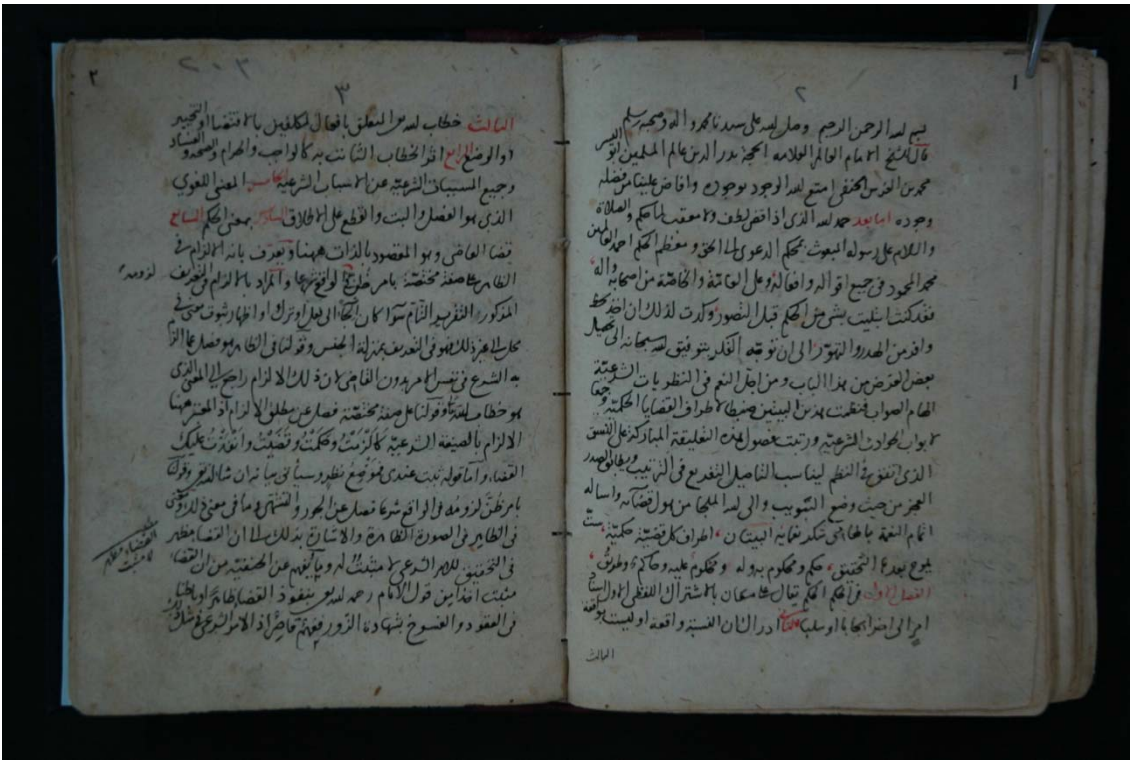 بسم الله الرحمن الرحيم وصلى الله على سيدنا محمد واله وصحبه وسلم
قال الشيخ الامام العالم العلامه الحجة بدر الدين عالم المسلمين ابو اليسر
محمد بن الغرس الحنفى امتع الله الوجود بوجوده وافاض علينا من فضله
وجوده اما بعد حمد لله الذى اذا قضى لطف ولا معقب لما حكم والصلاة
والسلام على رسوله المبعوث بمحكم الدعوى الى الحق ومعظم الحكم احمد العالمين
محمد المحمود فى جميع اقواله وافعاله وعلى العامة والخاصة من اصحابه واله
فقد كنت ابتليت بشئ من الحكم قبل التصور وكدت لذلك ان اخذ بحظ
وافر من الهدر والتهور الى ان توجه الفكر بتوفيق الله سبحانه الى تحصيل
بعض الغرض من هذا الباب ومن اجل النعم فى النظريات الشرعية
الهام الصواب فنظمت هذين البيتين ضبطا لاطراف القضايا الحكمية وجمعا
لابواب الحوادث الشرعية ورتبت فصول هذه التعليقة المباركة على النسق
الذى اتفق فى النظم ليناسب التاصيل التفريع فى الترتيب ويطابق الصدر
العجز من حيث وضع التبويب والى الله الملجا من هول قضائه واساله
اتمام النعمة بالهامى شكر نعمايه البيتان اطراف كل قضية حكمية ست
يلوح بعدها التحقيق حكم ومحكوم به وله ومحكوم عليه وحاكم وطريق
الفصل الاول فى الحكم الحكم يقال على معان بالاشتراك اللفظى الاول اسناد
امر الى اخر ايجابا او سلبا الثانى ادراك ان النسبة واقعة او ليست بواقعة
الثالث
١
٢
٢
٣
٢٠٣
الثالث خطاب الله تعالى المتعلق بافعال المكلفين بالاقتضا او التخيير
او الوضع الرابع اثر الخطاب الثابت به كالواجب والحرام والصحة والفساد
وجميع المسببات الشرعية عن الاسباب الشرعية الخامس المعنى اللغوي
الذى هو الفصل والبت والقطع على الاطلاق السادس بمعنى الحكم السابع
قضا القاضى وهو المقصود بالذات ههنا ويعرف بانه الالزام فى
الظاهر على صفة مختصة بامر ظن لزومه فى الواقع شرعا والمراد بالالزام فى التعريف
المذكور التقرير التام سوا كان الجاء الى فعل او ترك او اظهار ثبوت معنى فى
محل لامر ذلك هو فى التعريف بمنزلة الجنس وقولنا فى الظاهر هو فصل عما الزام
به الشرع فى نفس الامر بدون القاضى لان ذلك الالزام راجع الى المعنى الذى
هو خطاب الله تعالى وقولنا على صفة مختصة فصل عن مطلق الالزام اذ المعتبر ههنا
الالزام بالصيغة الشرعية كالزمت وحكمت وقضيت وانفذت عليك
القضاء واما قوله ثبت عندى فموضع نظر وسياتى بيانه ان شا الله تعالى وقولنا
بامر ظن لزومه فى الواقع شرعا فصل عن الجور والتشهى وما فى معنى ذلك ومعنى
فى الظاهر فى الصورة الظاهرة والاشارة بذلك الى ان القضا مظهر
فى التحقيق للامر الشرعى لا مثبت له وما يفهم عن الحنفية من ان القضا
مثبت اخذا من قول الامام رحمه الله تعالى بنفوذ القضا ظاهرا وباطنا
فى العقود والفسوخ بشهادة الزور ففهم قاصر اذ الامر الشرعى فى مثل
لزومه
القضاء مظهر
لا مثبت